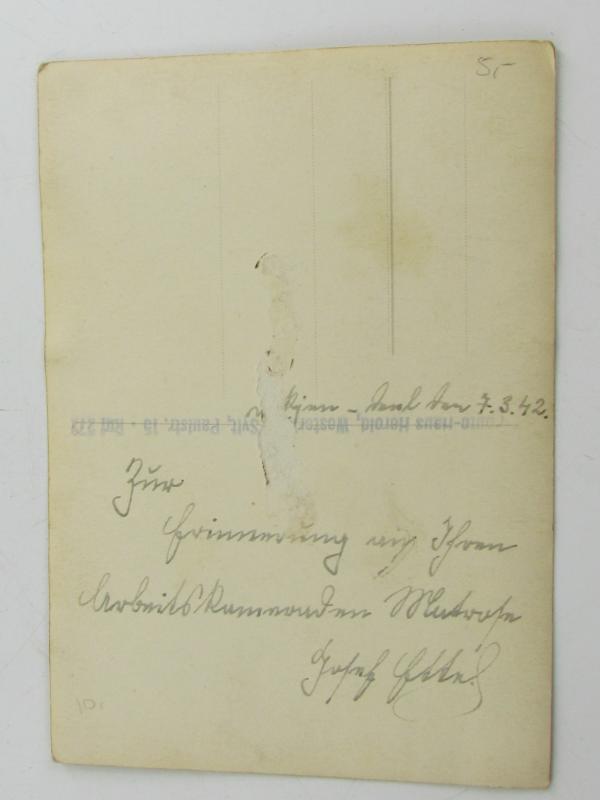 5,-
den 7.3.42.
Foto-Haus Herold, Westerland Sylt, Paulstr. 15 · Ruf 272
Zur
Erinnerung an Ihren
Arbeitskameraden Matrose
Josef
10,